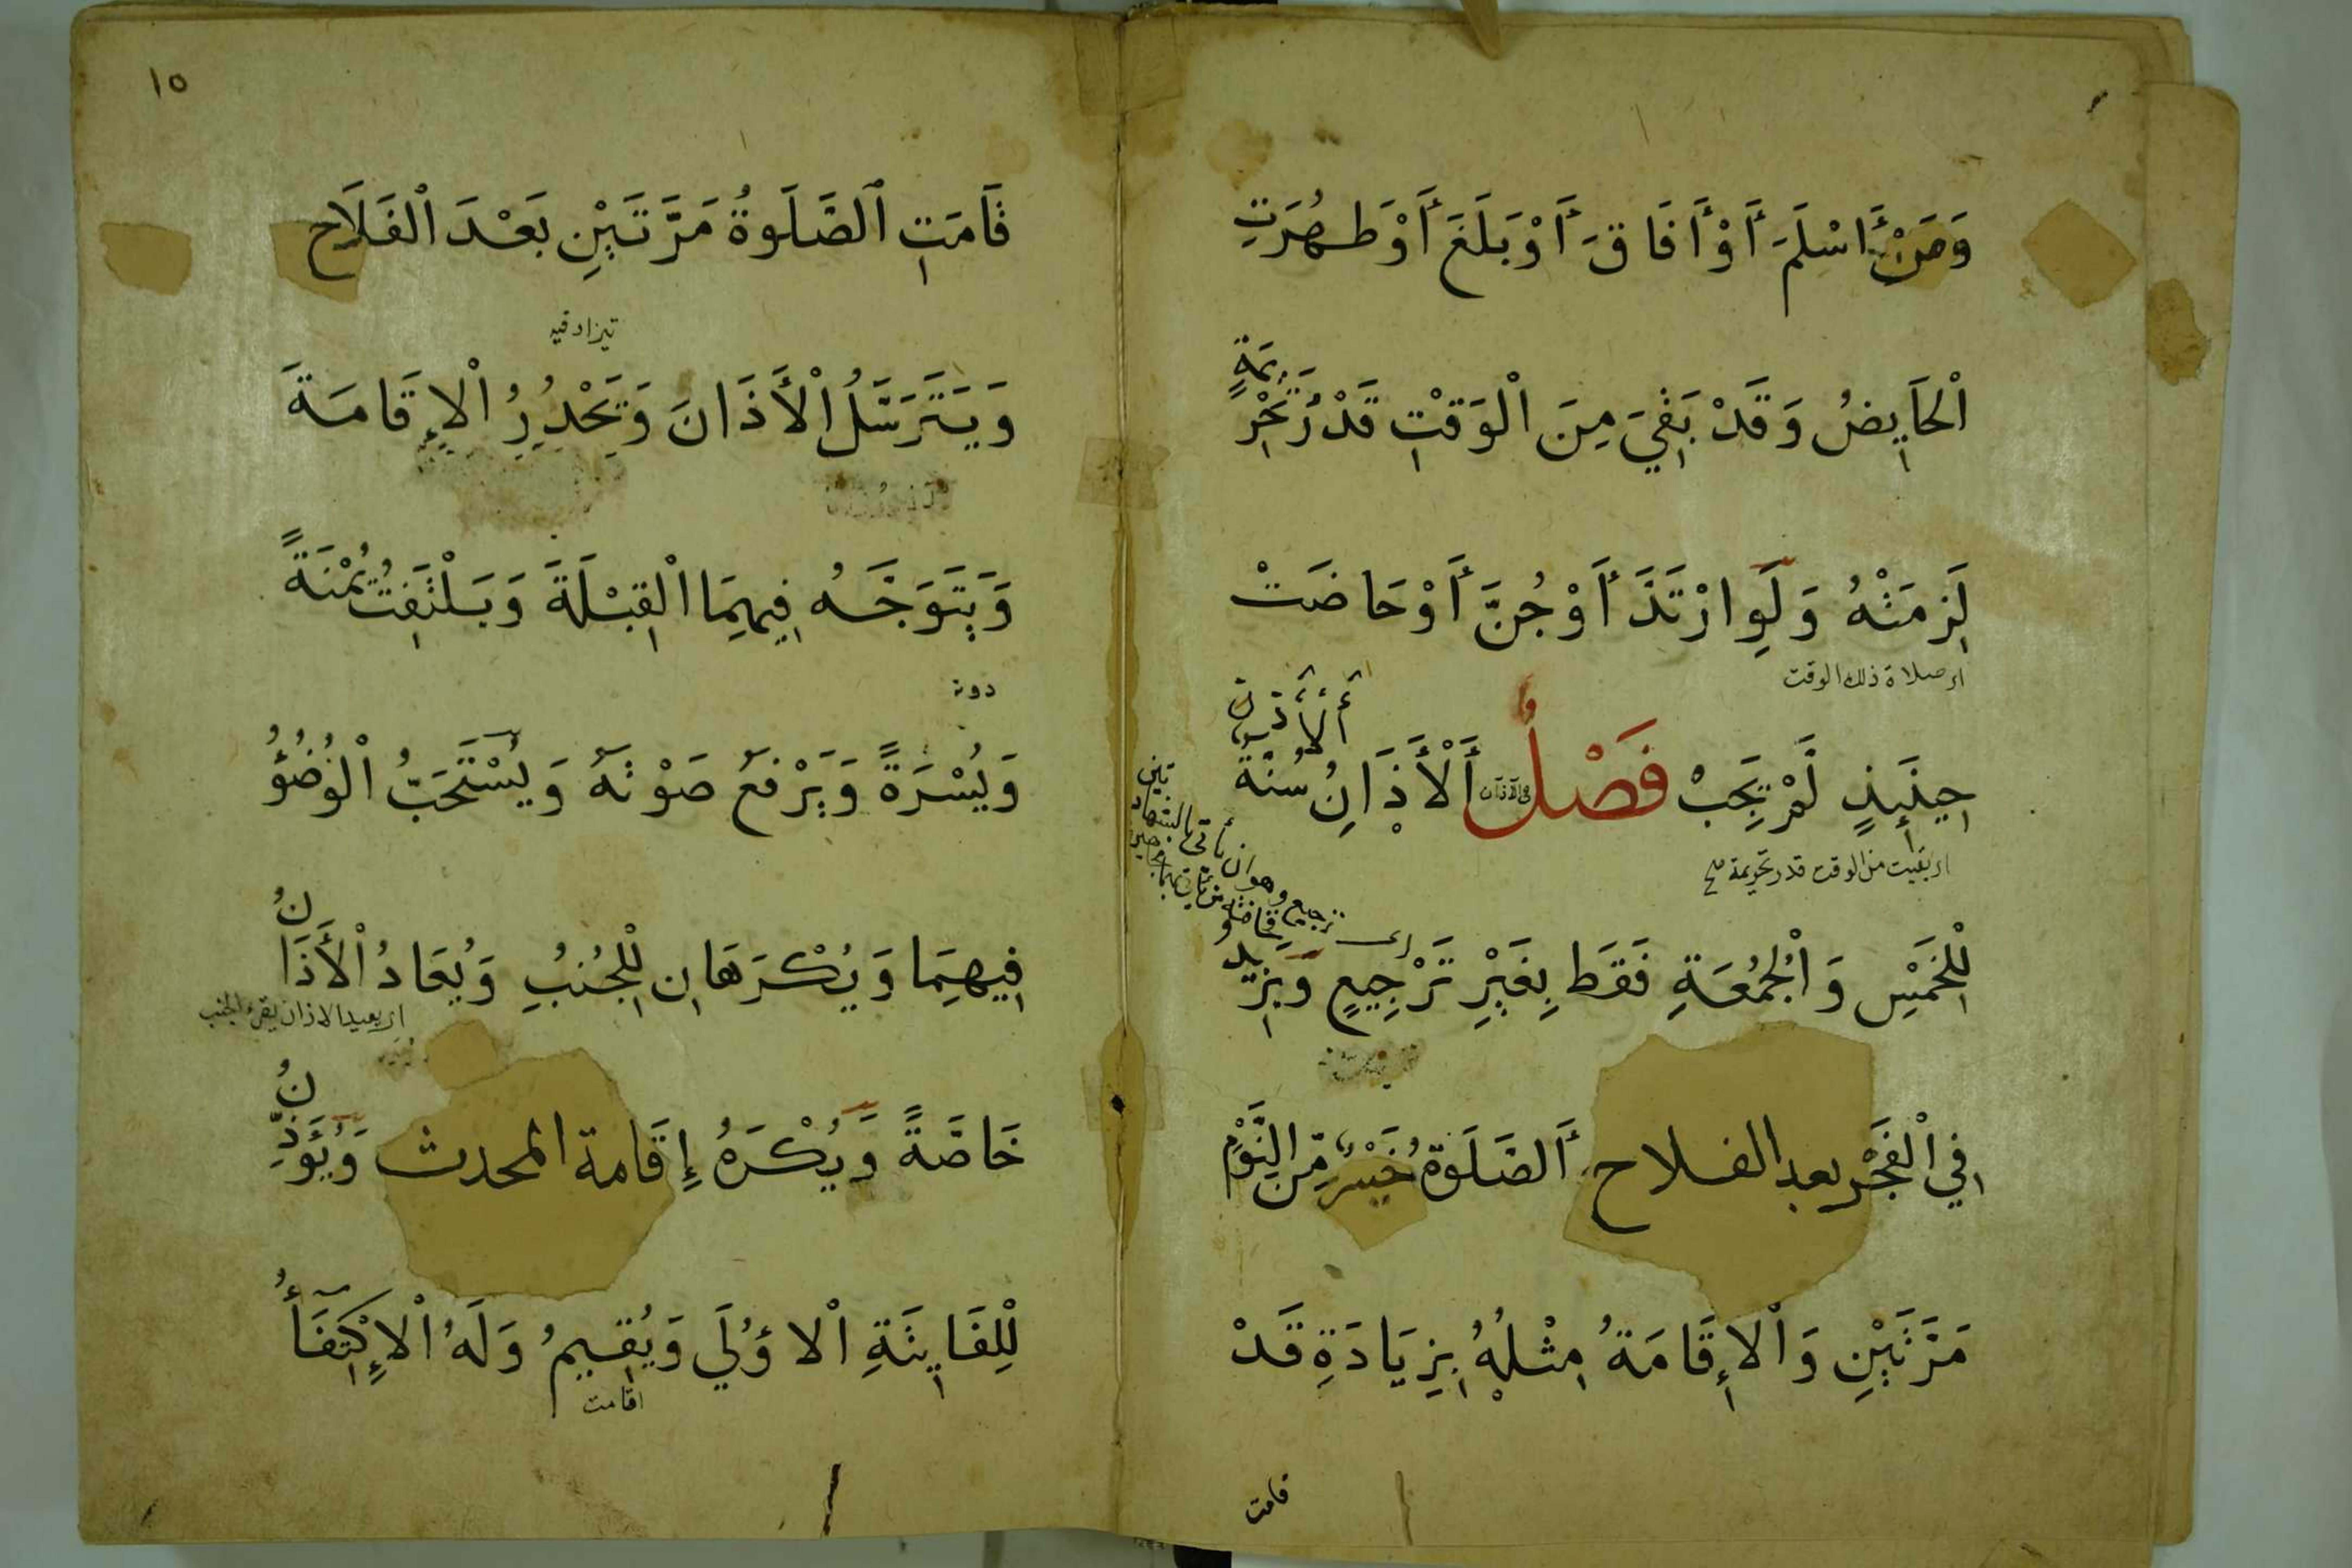 وَمَنْ أَسْلَمَ أَوْ أَفَاقَ أَوْ بَلَغَ أَوْ طَهُرَتِ
اْلحَايِضُ وَقَدْ بَقِيَ مِنَ اْلوَقْتِ قَدْرُ تَحْرِيمَةٍ
لَزِمَتْهُ وَلَوِ ارْتَدَّ أَوْ جُنَّ أَوْ حَاضَتْ
اى صلاة ذلك الوقت
حِينَئِذٍ لَمْ تَجِبْ فَصْلٌ أَلْأَذَانُ سُنَّةٌ
فى الاذان
اى بقيت من الوقت قدر تحريمة صح
لِلْخَمْسِ وَاْلجُمُعَةِ فَقَط بِغَيْرِ تَرْجِيعٍ وَيَزِيدُ
فِي اْلفَجْرِ بعد الفلاح أَلصَّلَوةُ خَيْرٌ مِّنَ النَّوْمِ
مَرَّتَيْنِ وَاْلاِقَامَةُ مِثْلُهُ بِزِيَادَةِ قَدْ
قامت
١٥
قَامَتِ الصَّلَوةُ مَرَّتَيْنِ بَعْدَ اْلفَلَاحِ
وَيَتَرَسَّلُ اْلأَذَانَ وَيَحْدُرُ اْلاِقَامَةَ
وَيَتَوَجَّهُ فِيهِمَا اْلقِبْلَةَ وَيَلْتَفِتُ يُمْنَةً
وَيُسْرَةً وَيَرْفَعُ صَوْتَهُ وَيُسْتَحَبُّ اْلوُضُؤُ
فِيهِمَا وَيُكْرَهَانِ لِلْجُنُبِ وَيُعَادُ اْلأَذَانُ
اى يعيد الاذان
خَاصَّةً وَيُكْرَهُ إِقَامة المحدث وَيُؤَذِّنُ
لِلْفَايِتَةِ اْلاُوْلَي وَيُقِيمُ وَلَهُ اْلاِكْتِفَأُ
اقامت